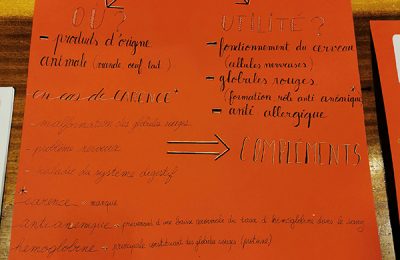 OÙ ?
- produits d'origine
animale (viande oeuf lait)
UTILITÉ ?
- fonctionnement du cerveau
(cellules nerveuses)
- globules rouges
(formation rôle anti anémique*)
- anti allergique
en cas de CARENCE*
- malformation des globules rouges
- problème nerveux
- maladie du système digestif
COMPLEMENTS
*carence → manque
anti anémique → provenons d'une baisse anormale du taux d'hémoglobine dans le sang
hemoglobine → principale constituant des globules rouges (protéine)